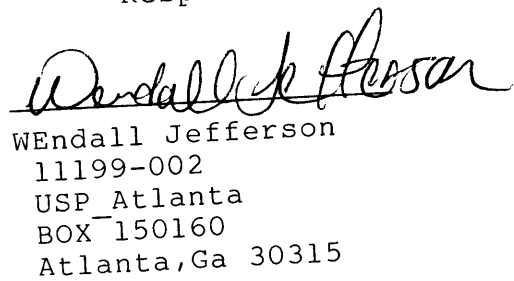 Wendall Jefferson
WEndall Jefferson
11199-002
USP Atlanta
BOX 150160
Atlanta,Ga 30315